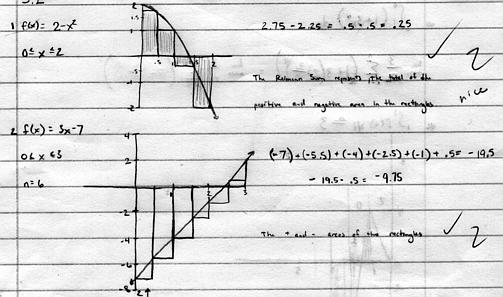 5.2
1 f(x) = 2-x²
0≤ x ≤2
2.75 - 2.25 = .5 · .5 = .25
✓ 2
The Reimann Sum represents the total of the
positive and negative area in the rectangles
nice
2 f(x) = 3x-7
0≤ x ≤3
n=6
(-7)+(-5.5)+(-4)+(-2.5)+(-1)+ .5= -19.5
-19.5 · .5 = -9.75
The + and - areas of the rectangles
✓ 2